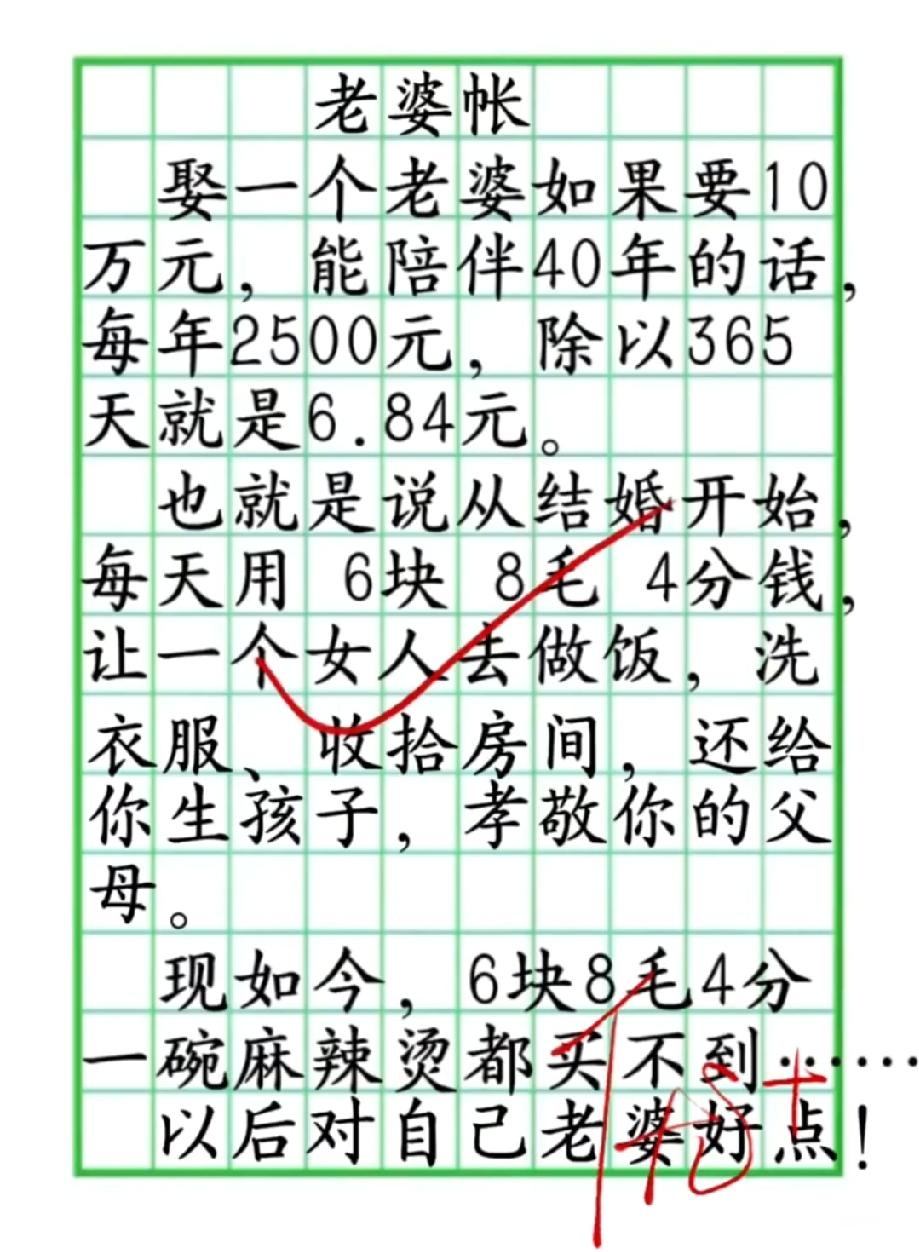 老婆帐
娶一个老婆如果要10
万元，能陪伴40年的话，
每年2500元，除以365
天就是6.84元。
也就是说从结婚开始，
每天用 6块 8毛 4分钱，
让一个女人去做饭，洗
衣服、收拾房间，还给
你生孩子，孝敬你的父
母。
现如今，6块8毛4分
一碗麻辣烫都买不到……
以后对自己老婆好点！